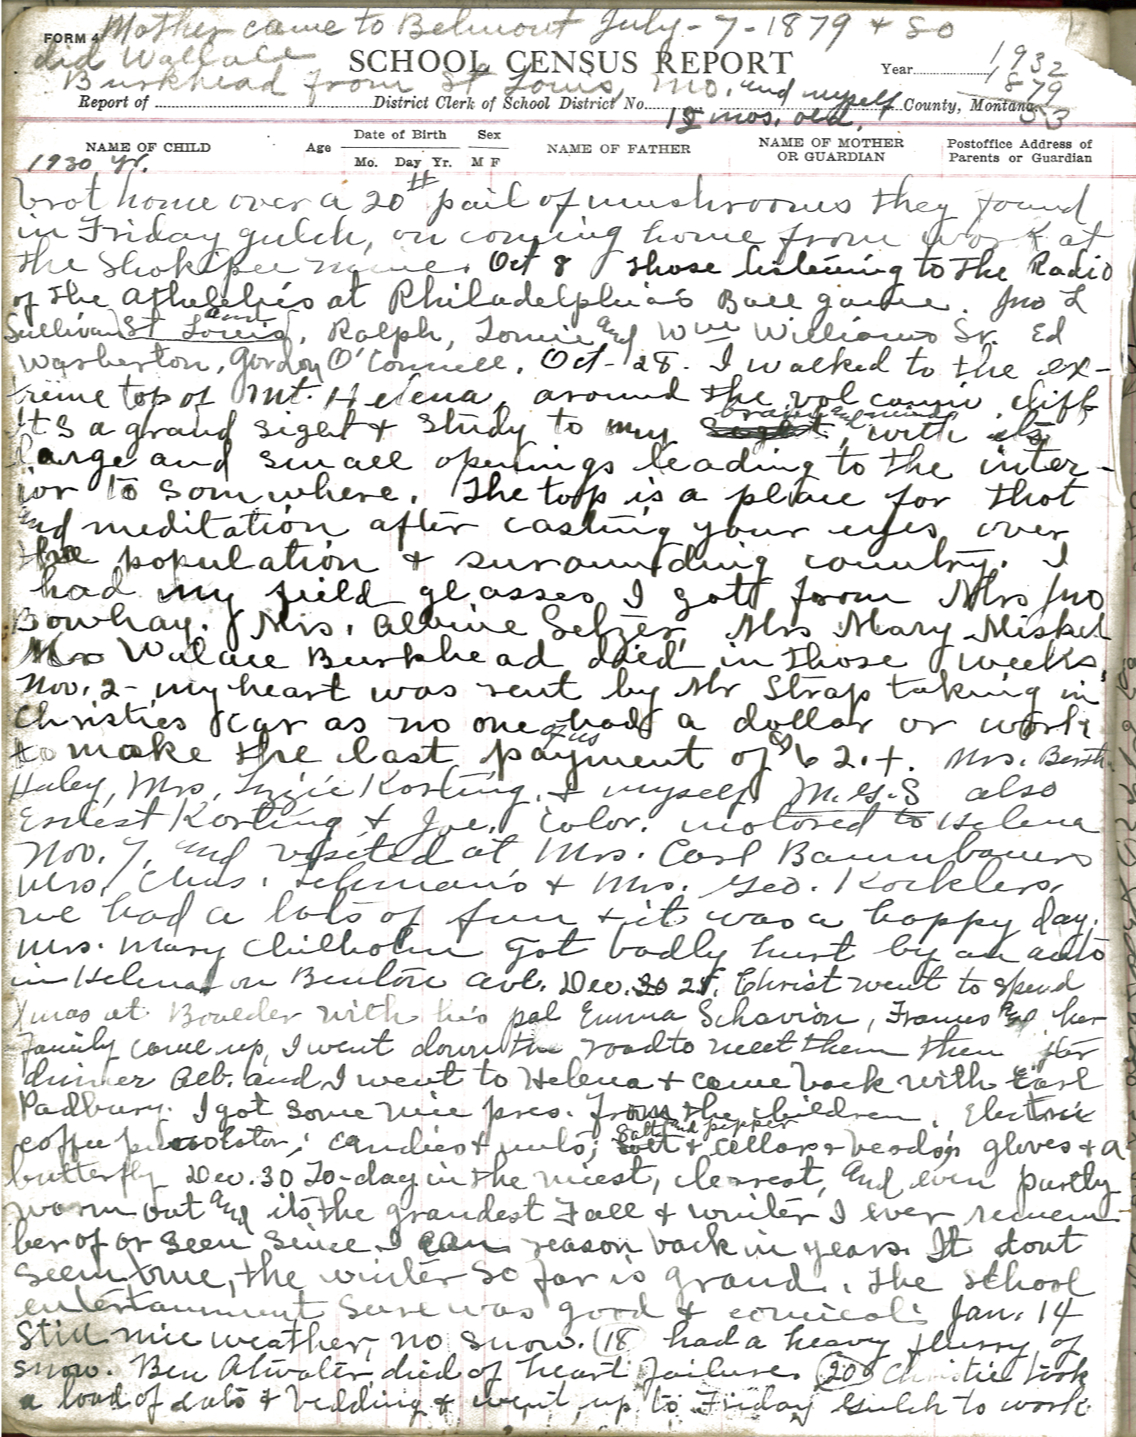 Mother came to Belmont July - 7 - 1879 + so
FORM 4
did Wallace
SCHOOL CENSUS REPORT
Year 1932
1879
53
Burkhead from St Louis, Mo. and myself
Report of District Clerk of School District No. County, Montana
18 mos. old.
NAME OF CHILD Age Date of Birth Mo. Day Yr. Sex M F NAME OF FATHER NAME OF MOTHER OR GUARDIAN Postoffice Address of Parents or Guardian
1930 yr.
brot home over a 20 # pail of mushrooms they found
in Friday gulch, on coming home from work at
the mine. Oct 8 those listening to the Radio
of the Athuletics at Philadelphias Ball game. Jno L
Sullivan and St Louis, Ralph, Lonnie and Wm Williams Sr. Ed
Warberton, Gordon O'Connell. Oct - 28. I walked to the ex-
treme top of Mt. Helena, around the volcanic cliff
It's a grand sight + study to my brain and mind, with its
large and small openings leading to the inter-
ior to somwhere. The top is a place for thot
and meditation after casting your eyes over
the population + surrounding country. I
had my field glasses I gott from Mrs Jno
Bowhay. Mrs. Albine Selzer, Mrs Mary Miskel
Mrs Walace Burkhead died in those weeks.
Nov. 2 - my heart was rent by Mr Strap taking in
Christies car as no one of us had a dollar or work
to make the last payment of $62.+. Mrs. Berth
Haley, Mrs. Lizzie Korting, + myself M.G.S also
Ernest Korting + Joe. Color. motored to Helena
Nov. 7, and visited at Mrs. Carl Baumbauers
Mrs. Chas. Lehman's + Mrs. Geo. Kocklers,
we had a lots of fun + it was a happy day.
Mrs. Mary Chilholm got badly hurt by an auto
in Helena on Benton ave. Dec. 25. Christ went to spend
Xmas at Boulder with his pal Emma Schavion, Frances and her
family came up, I went down the road to meet them then after
dinner Alb. and I went to Helena + came back with Earl
Padbury. I got some nice pres. from the children. Electric
coffee percolator; candies + nuts; salt and pepper cellars + beads; gloves + a
butterfly Dec. 30 To-day in the nicest, clearest, and even partly
warm out and its the grandest Fall + winter I ever remem-
ber of or seen since I can reason back in years. It dont
seem true, the winter so far is grand. The school
entertainment sure was good + comical. Jan. 14
still nice weather, no snow. (18 had a heavy flurry of
snow. Ben Atwater died of heart failure. (20) Christie took
a load of eats + bedding + went up to Friday Gulch to work